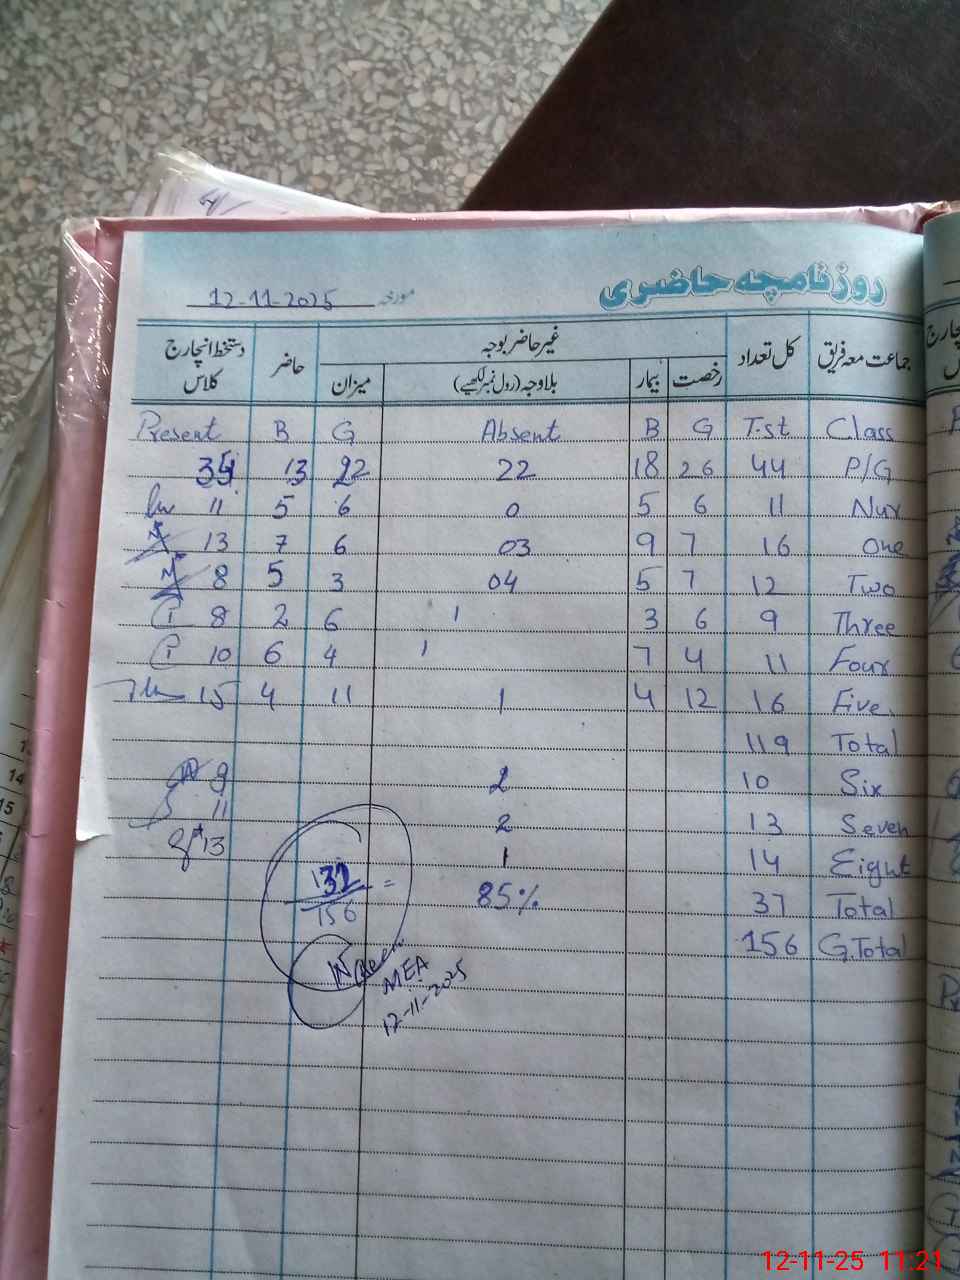 روزنامچہ حاضری
مورخہ 12-11-2025
جماعت معہ فریق کل تعداد غیر حاضر بوجہ حاضر دستخط انچارج کلاس
رخصت بیمار بلاوجہ (رول نمبر لکھیے) میزان
Present B G Absent B G T.st Class
13 22 22 18 26 44 P/G
11 5 6 0 5 6 11 Nur
13 7 6 03 9 7 16 One
8 5 3 04 5 7 12 Two
8 2 6 1 3 6 9 Three
10 6 4 1 7 4 11 Four
15 4 11 1 4 12 16 Five
119 Total
2 10 Six
11 2 13 Seven
13 1 14 Eight
132/156 = 85% 37 Total
156 G.Total
MEA
12-11-2025
12-11-25 11:21